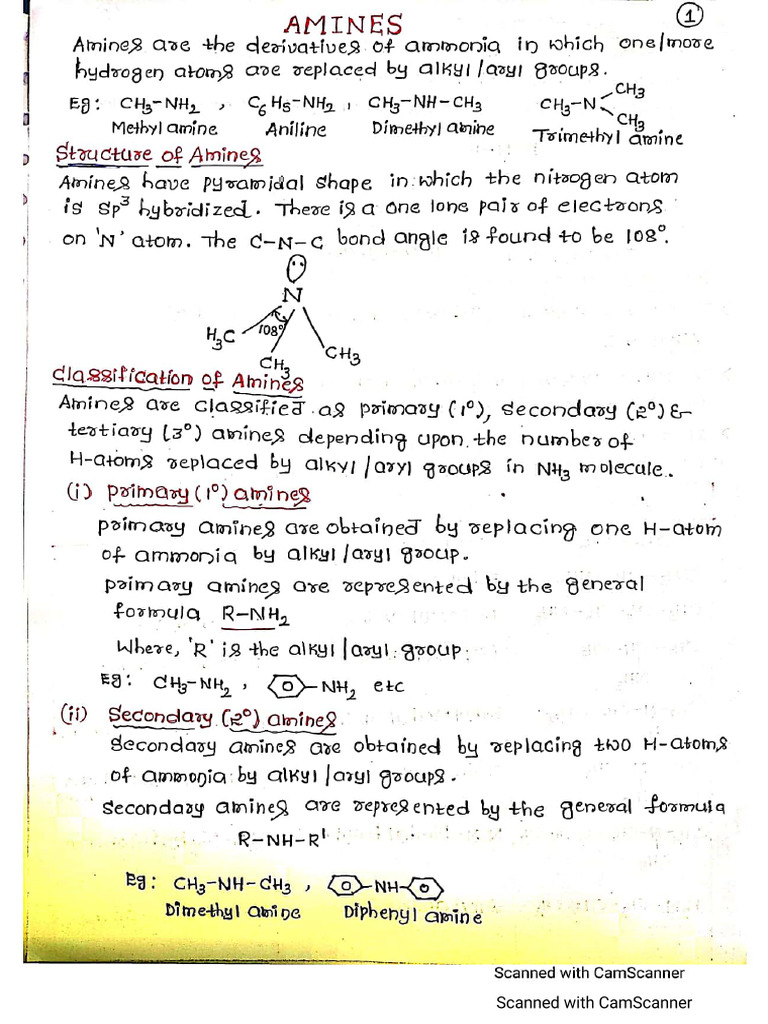 AMINES
1
Amines are the derivatives of ammonia in which one/more
hydrogen atoms are replaced by alkyl/aryl groups.
Eg: CH₃-NH₂ , C₆H₅-NH₂ , CH₃-NH-CH₃ CH₃-N CH₃ CH₃
Methyl amine Aniline Dimethyl amine Trimethyl amine
Structure of Amines
Amines have pyramidal shape in which the nitrogen atom
is sp³ hybridized. There is a one lone pair of electrons
on 'N' atom. The C-N-C bond angle is found to be 108°.
N
H₃C 108° CH₃ CH₃
Classification of Amines
Amines are classified as primary (1°), secondary (2°) &
tertiary (3°) amines depending upon the number of
H-atoms replaced by alkyl/aryl groups in NH₃ molecule.
(i) Primary (1°) amines
primary amines are obtained by replacing one H-atom
of ammonia by alkyl/aryl group.
primary amines are represented by the general
formula R-NH₂
Where, 'R' is the alkyl/aryl group.
Eg: CH₃-NH₂ , -NH₂ etc
(ii) Secondary (2°) amines
Secondary amines are obtained by replacing two H-atoms
of ammonia by alkyl/aryl groups.
Secondary amines are represented by the general formula
R-NH-R'
Eg: CH₃-NH-CH₃ , -NH-
Dimethyl amine Diphenyl amine
Scanned with CamScanner
Scanned with CamScanner